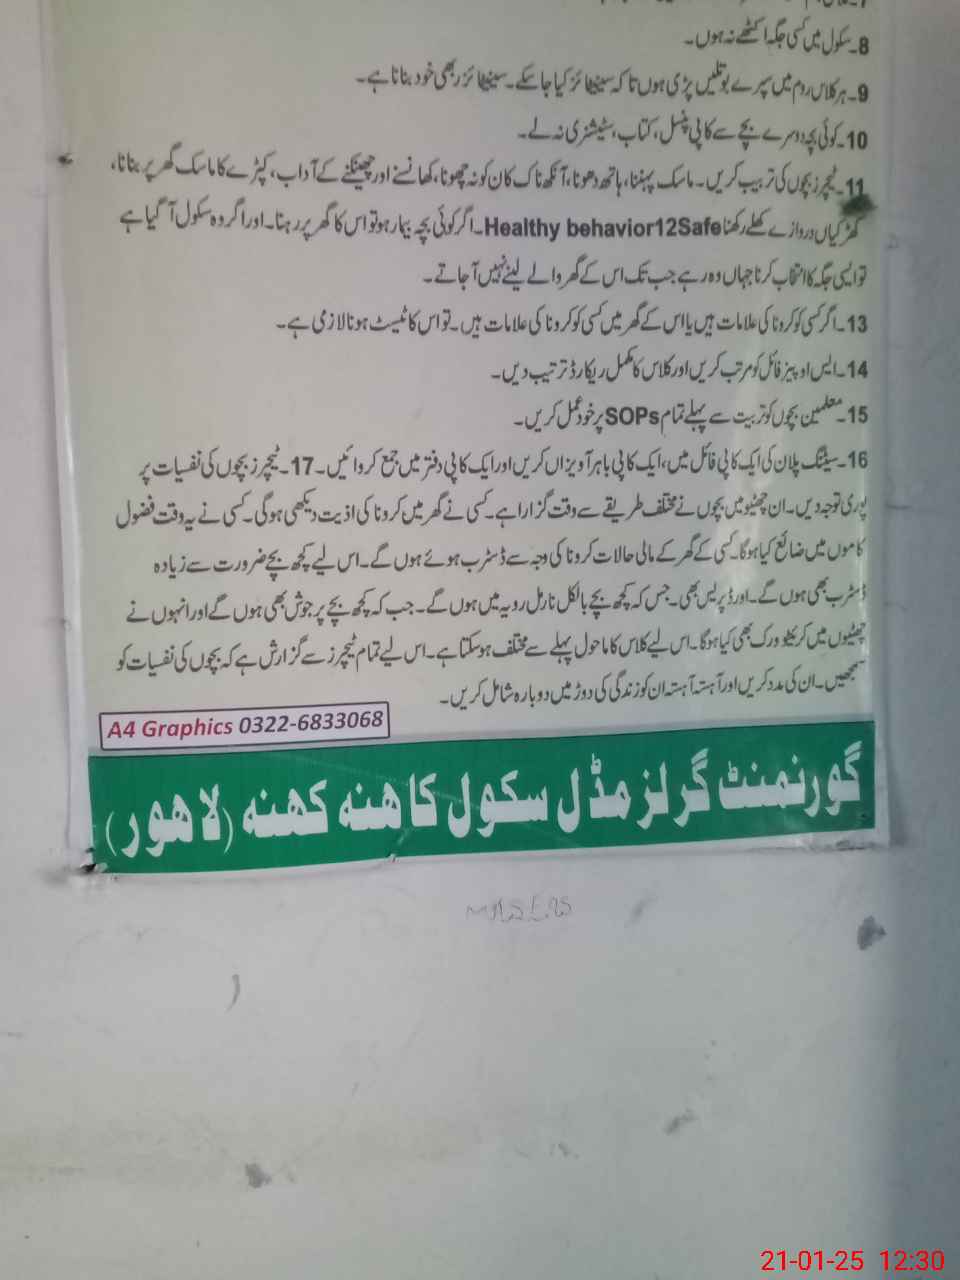 8۔سکول میں کسی جگہ اکٹھے نہ ہوں۔
9۔ہر کلاس روم میں سپرے بوتلیں پڑی ہوں تا کہ سینیٹائز کیا جا سکے۔سینیٹائزر بھی خود بنانا ہے۔
10۔کوئی بچہ دوسرے بچے سے کاپی پنسل، کتاب، سٹیشنری نہ لے۔
11۔ٹیچرز بچوں کی تربیت کریں۔ ماسک پہننا، ہاتھ دھونا، آنکھ ناک کان کو نہ چھونا، کھانسنے اور چھینکنے کے آداب، کپڑے کا ماسک گھر پر بنانا،
کھڑکیاں دروازے کھلے رکھنا Healthy behavior12Safe۔اگر کوئی بچہ بیمار ہو تو اس کا گھر پر رہنا۔اور اگر وہ سکول آ گیا ہے
تو ایسی جگہ کا انتخاب کرنا جہاں وہ رہے جب تک اس کے گھر والے لینے نہیں آ جاتے۔
13۔اگر کسی کو کرونا کی علامات ہیں یا اس کے گھر میں کسی کو کرونا کی علامات ہیں۔تو اس کا ٹیسٹ ہونا لازمی ہے۔
14۔ایس او پیز فائل کو مرتب کریں اور کلاس کا مکمل ریکارڈ ترتیب دیں۔
15۔معلمین بچوں کو تربیت سے پہلے تمام SOPs پر خود عمل کریں۔
16۔سیٹنگ پلان کی ایک کاپی فائل میں، ایک کاپی باہر آویزاں کریں اور ایک کاپی دفتر میں جمع کروائیں۔17۔ٹیچرز بچوں کی نفسیات پر
پوری توجہ دیں۔ان چھٹیوں میں بچوں نے مختلف طریقے سے وقت گزارا ہے۔کسی نے گھر میں کرونا کی اذیت دیکھی ہو گی۔کسی نے یہ وقت فضول
کاموں میں ضائع کیا ہو گا۔کسی کے گھر کے مالی حالات کرونا کی وجہ سے ڈسٹرب ہوئے ہوں گے۔اس لیے کچھ بچے ضرورت سے زیادہ
ڈسٹرب بھی ہوں گے۔اور ڈپریس بھی۔جس کہ کچھ بچے بالکل نارمل رویہ میں ہوں گے۔جب کہ کچھ بچے پر جوش بھی ہوں گے اور انہوں نے
چھٹیوں میں کریٹیو ورک بھی کیا ہو گا۔اس لیے کلاس کا ماحول پہلے سے مختلف ہو سکتا ہے۔اس لیے تمام ٹیچرز سے گزارش ہے کہ بچوں کی نفسیات کو
سمجھیں۔ان کی مدد کریں اور آہستہ آہستہ ان کو زندگی کی دوڑ میں دوبارہ شامل کریں۔
A4 Graphics 0322-6833068
گورنمنٹ گرلز مڈل سکول کاہنہ کہنہ (لاہور)
21-01-25 12:30